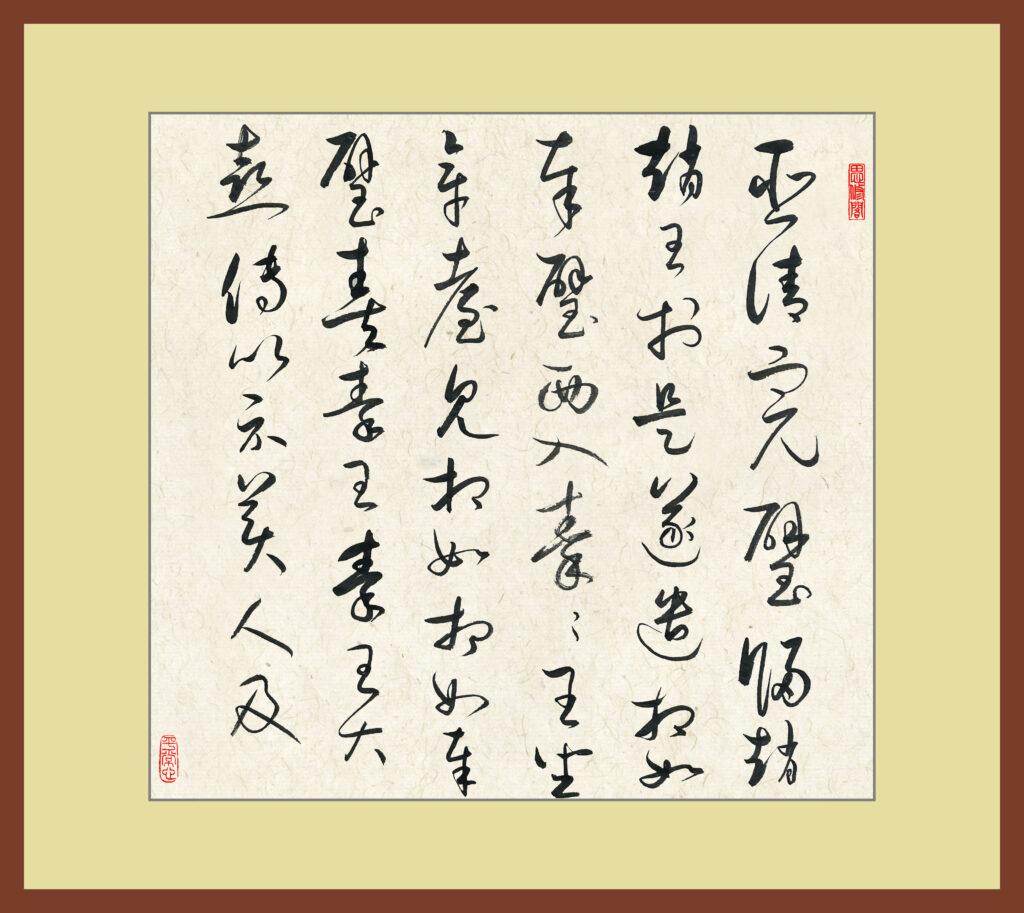 臣請完璧歸趙
趙王於是遂遣相如
奉璧西入秦〻王坐
章臺見相如相如奉
璧奏秦王秦王大
喜傳以示美人及
思修閣
平常心